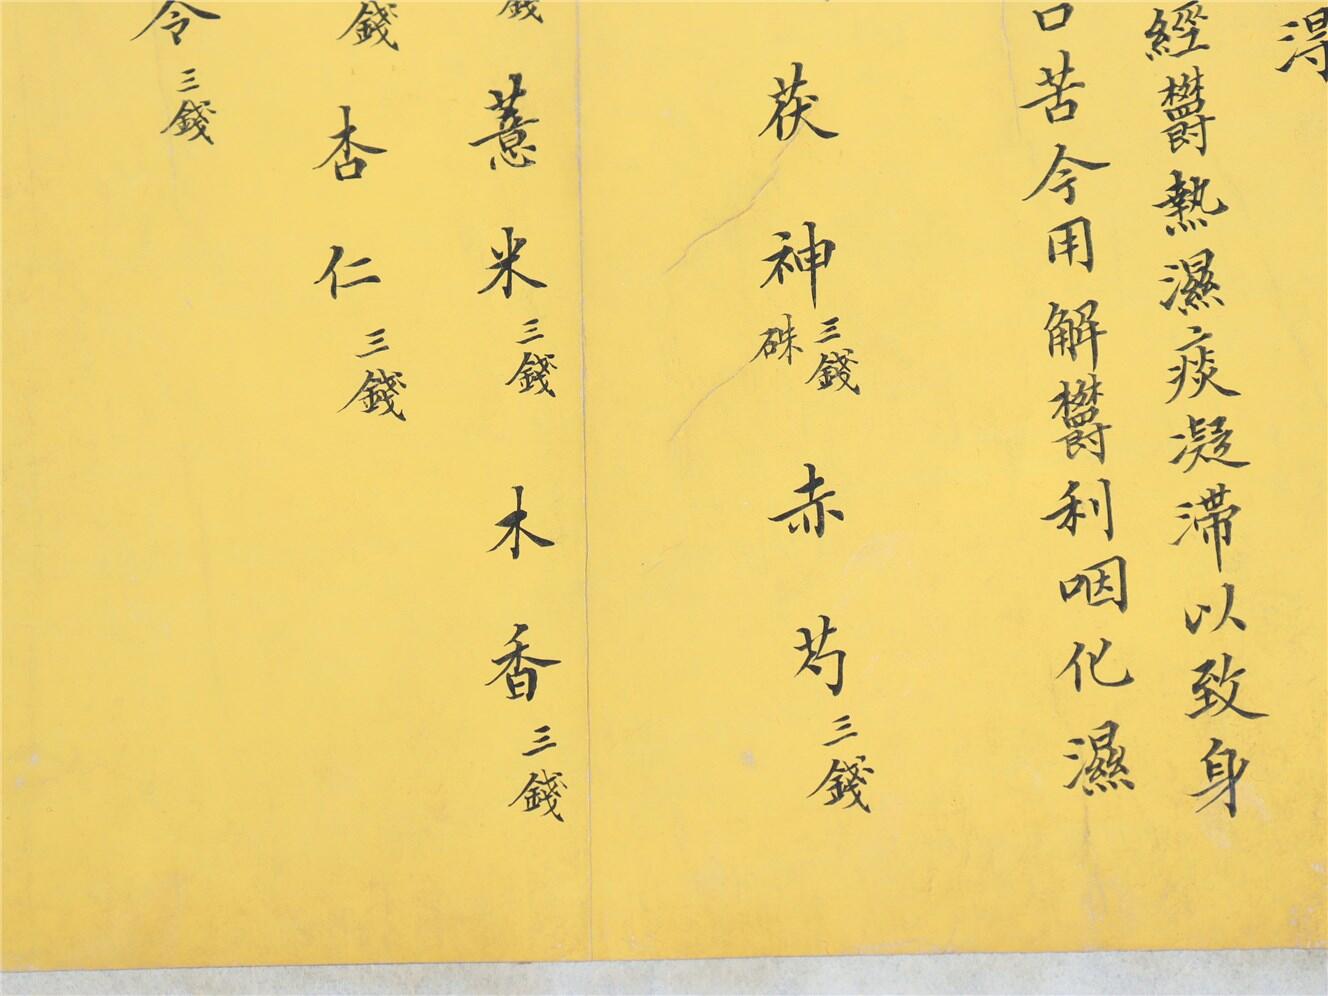 經鬱熱濕痰凝滯以致身
口苦今用解鬱利咽化濕
茯神三錢硃 赤芍三錢
薏米三錢 木香三錢
錢 杏仁三錢
令三錢